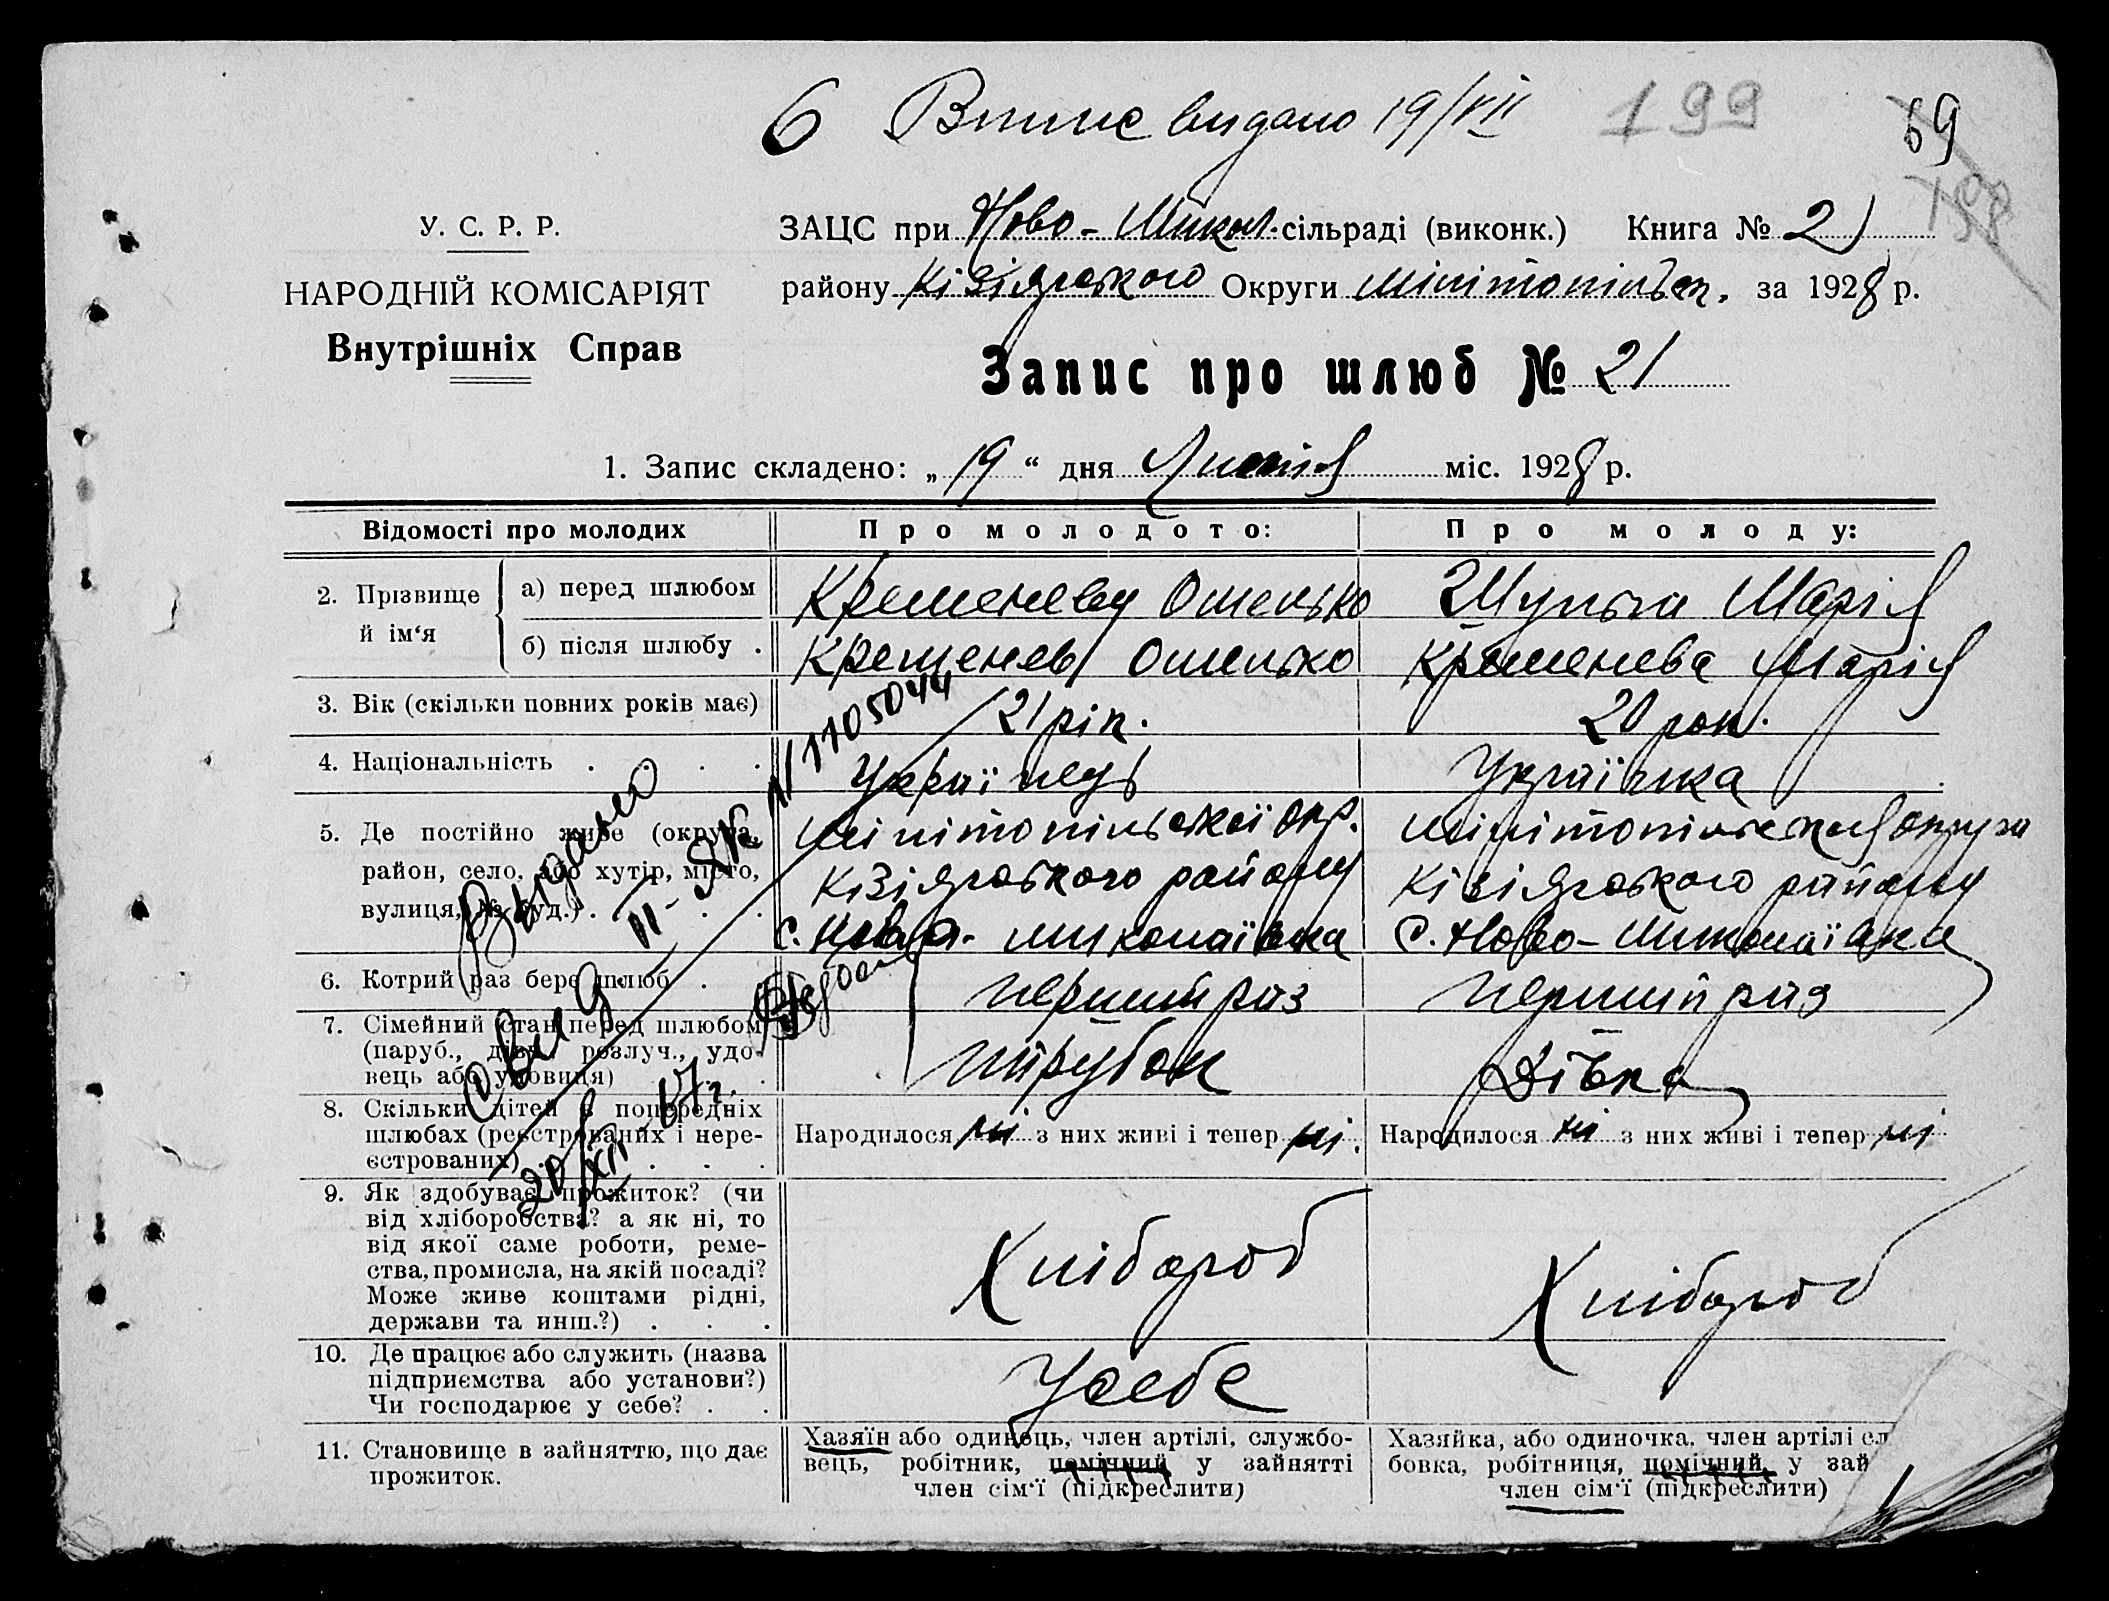 6 Випис видано 19/VII 199 69
198
У. С. Р. Р.
НАРОДНІЙ КОМІСАРІЯТ
Внутрішніх Справ
ЗАЦС при Ново-Микол. сільраді (виконк.) Книга № 2
району Кізіярського Округи Мілітопільск. за 1928 р.
Запис про шлюб № 21
1. Запис складено: „ 19 “ дня Липня міс. 1928 р.
Відомості про молодих
Про молодого:
Про молоду:
2. Прізвище й ім‘я
а) перед шлюбом
Омелько
Шульга Марія
б) після шлюбу .
Омелько
Кременева Марія
3. Вік (скільки повних років має)
21 рік.
20 рок.
4. Національність . . . .
Українець
Українка
5. Де постійно живе (округа,
район, село, або хутір, місто,
вулиця, № буд.) . . . .
Мілітопільської окр.
Кізіярського району
с. Ново-Миколаївка
Мілітопільская округи
Кізіярського району
с. Ново-Миколаївки
6. Котрий раз бере шлюб . .
перший раз
перший раз
7. Сімейний стан перед шлюбом
(паруб., дівч., розлуч., удо-
вець або удовиця) . .
Парубок
Дівка
8. Скільки дітей в попередніх
шлюбах (реєстрованих і нере-
єстрованих) . . . . .
Народилося ні з них живі і тепер ні.
Народилося ні з них живі і тепер ні
9. Як здобуває прожиток? (чи
від хліборобства? а як ні, то
від якої саме роботи, реме-
ства, промисла, на якій посаді?
Може живе коштами рідні,
держави та инш.?) . . .
Хлібороб
Хлібороб
10. Де працює або служить (назва
підприємства або установи?)
Чи господарює у себе? . .
У себе
11. Становище в зайняттю, що дає
прожиток.
Хазяїн або одинець, член артілі, службо-
вець, робітник, помічний у зайнятті
член сім‘ї (підкреслити)
Хазяйка, або одиночка, член артілі сл
бовка, робітниця, помічний у зай
член сім‘ї (підкреслити)
Выдано
свид. II-ЯК № 1105044
20/XII 67 г.